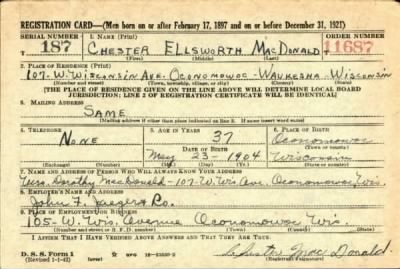 REGISTRATION CARD—(Men born on or after February 17, 1897 and on or before December 31, 1921)
SERIAL NUMBER 1. NAME (Print) ORDER NUMBER
187 CHESTER ELLSWORTH MACDONALD 11687
(First) (Middle) (Last)
2. PLACE OF RESIDENCE (Print)
107-W. WISCONSIN AVE. OCONOMOWOC - WAUKESHA - WISCONSIN
(Number and street) (Town, township, village, or city) (County) (State)
[THE PLACE OF RESIDENCE GIVEN ON THE LINE ABOVE WILL DETERMINE LOCAL BOARD
JURISDICTION; LINE 2 OF REGISTRATION CERTIFICATE WILL BE IDENTICAL]
3. MAILING ADDRESS
SAME
[Mailing address if other than place indicated on line 2. If same insert word same]
4. TELEPHONE 5. AGE IN YEARS 6. PLACE OF BIRTH
NONE 37 Oconomowoc
DATE OF BIRTH (Town or county)
May 23 - 1904 Wisconsin
(Exchange) (Number) (Mo.) (Day) (Yr.) (State or country)
7. NAME AND ADDRESS OF PERSON WHO WILL ALWAYS KNOW YOUR ADDRESS
Mrs. Dorothy MacDonald - 107-W. Wis Ave. Oconomowoc Wis.
8. EMPLOYER'S NAME AND ADDRESS
John F. Jaeger Co.
9. PLACE OF EMPLOYMENT OR BUSINESS
105-W. Wis. Avenue Oconomowoc Wis.
(Number and street or R. F. D. number) (Town) (County) (State)
I AFFIRM THAT I HAVE VERIFIED ABOVE ANSWERS AND THAT THEY ARE TRUE.
D. S. S. Form 1
(Revised 1-1-42) (over)
Chester MacDonald
(Registrant's signature)